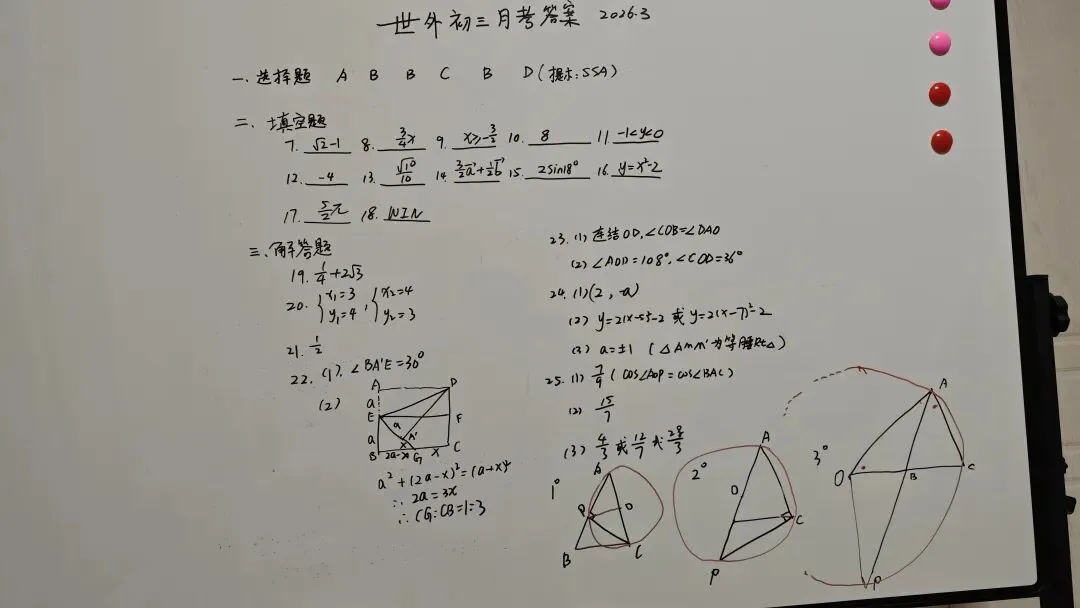 世外初三月考答案 2026.3
一、选择题 A B B C B D(提示:SSA)
二、填空题
7. √2-1 8. 3/4x 9. x≥-3/2 10. 8 11. -1<y<0
12. -4 13. √10/10 14. 3/2a⃗+1/2b⃗ 15. 2sin18° 16. y=x²-2
17. 5/2π 18. WIN
三、解答题
19. 1/4+2√3
20. {x₁=3 y₁=4, {x₂=4 y₂=3
21. 1/2
22. (1), ∠BA'E=30°
(2)
A D
a
E a F
A'
a x
B 2a-x G x C
a²+(2a-x)²=(a+x)²
∴ 2a=3x
∴ CG:CB=1:3
23. (1) 连结OD, ∠COB=∠DAO
(2) ∠AOD=108°, ∠COD=36°
24. (1)(2, -a)
(2) y=2(x-5)²-2 或 y=2(x-7)²-2
(3) a=±1 (△AMM'为等腰Rt△)
25. (1) 7/9 (cos∠AOP=cos∠BAC)
(2) 15/7
(3) 4/3 或 12/7 或 28/3
1°
A
P O
B C
2°
A
O
C
P
3°
A
O B C
P